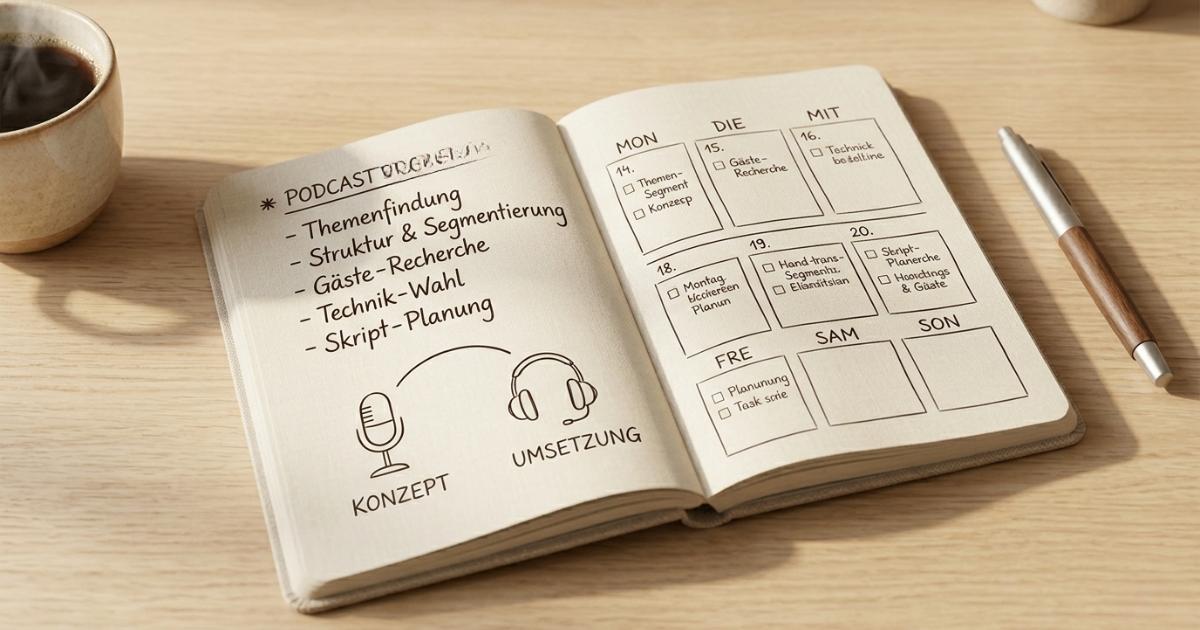 * PODCAST
- Themenfindung
- Struktur & Segmentierung
- Gäste-Recherche
- Technik-Wahl
- Skript-Planung
KONZEPT
UMSETZUNG
MON
DIE
MIT
14.
Themen-
Segment
Konzep
15.
Gäste-
Recherche
16.
Technick
18.
Montag-
Planun
19.
Hand-trans-
20.
Skript-
Planerche
& Gäste
FRE
SAM
SON
Planunung
Task